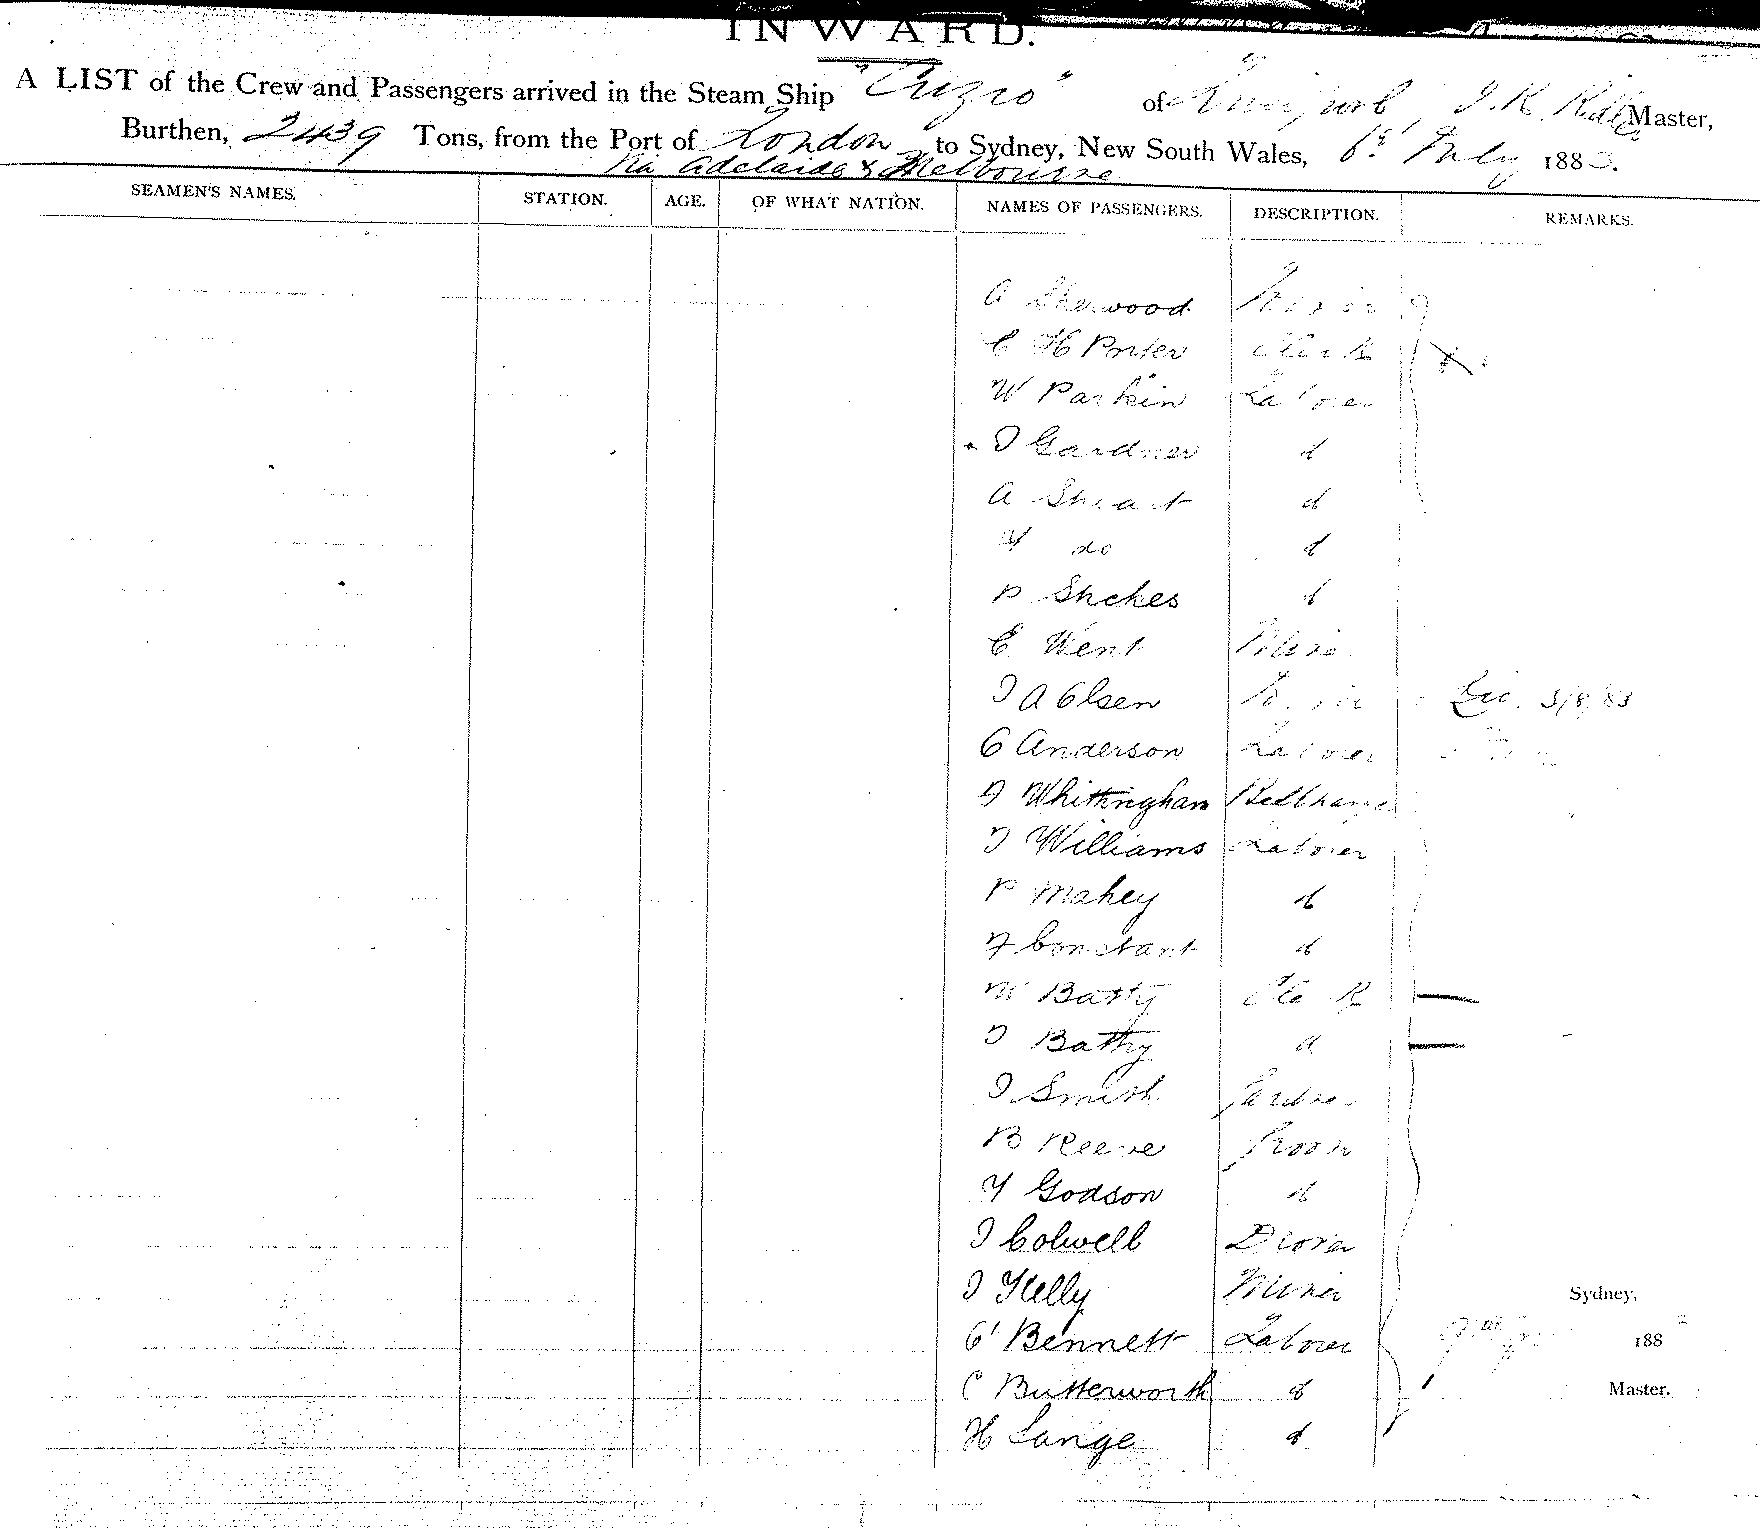 INWARD.
A LIST of the Crew and Passengers arrived in the Steam Ship "Cuzco" of Liverpool, J. K. Ridler Master,
Burthen, 2439 Tons, from the Port of London to Sydney, New South Wales, 6th July 1883.
Via Adelaide & Melbourne
SEAMEN'S NAMES. STATION. AGE. OF WHAT NATION. NAMES OF PASSENGERS. DESCRIPTION. REMARKS.
A Sherwood
C H Porter Clerk
W Parkin Laborer
J Gardner d
A d
do d
P d
E Went Miner
J A Olsen 3/8/83
C Anderson Laborer
J Whittingham Bellhanger
J Williams Laborer
P Mahey d
F Constant d
W Batty Clerk
J Batty d
J Smith Gardner
B Reeve Groom
Y Godson d
J Colwell Drover
J Kelly Miner
Sydney,
G Bennett Laborer
188
C Butterworth d
Master.
H Lange d